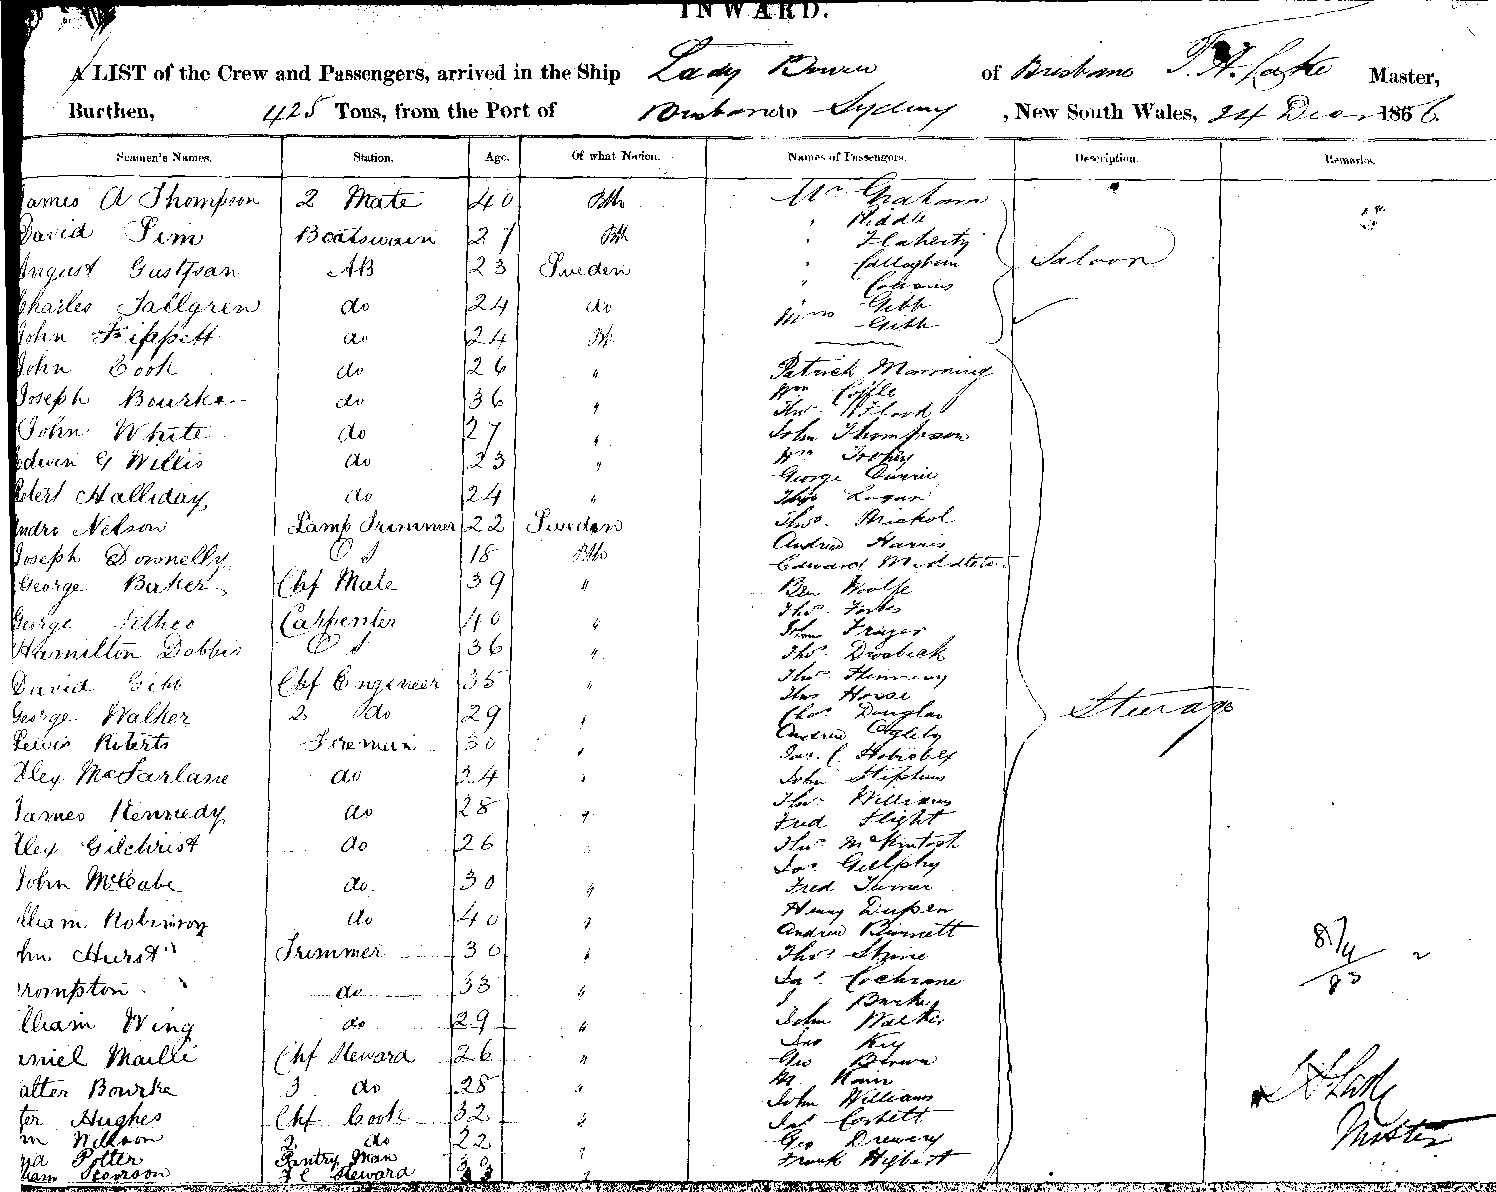 INWARD.
A LIST of the Crew and Passengers, arrived in the Ship Lady Bowen of Brisbane T. A. Lake Master,
Burthen, 425 Tons, from the Port of Brisbane to Sydney, New South Wales, 24 Decr 1866
Seamen's Names. Station. Age. Of what Nation. Names of Passengers. Description. Remarks.
James A Thompson 2 Mate 40 Bth
David Sim Boatswain 27 Bth
August Gustfsan AB 23 Sweden
Charles Tallgren do 24 do
John Tippett do 24 Bt
John Cook do 26 "
Joseph Bourke do 36 "
John White do 27 "
Edwin G Willis do 23 "
Robert Halliday do 24 "
Andro Nelson Lamp Trimmer 22 Sweden
Joseph Donnelly O S 18 Bth
George Baker Chf Mate 39 "
George Carpenter 40 "
Hamilton Dobbie O S 36 "
David Gibb Chf Engineer 35 "
George Walker 2 do 29 "
Lewis Roberts Foreman 30 "
Alex McFarlane do 24 "
James Kennedy do 28 "
Alex Gilchrist do 26 "
John McCabe do 30 "
lliam Robinson do 40 "
hn Hurst Trimmer 30 "
rompton do 33 "
lliam Wing do 29 "
aniel Maille Chf Steward 26 "
alter Bourke 3 do 28 "
ter Hughes Chf Cook 32 "
m Nelson 2 do 22
Potter Pantry Man
Steward
Mr Graham
" Riddle
" Flaherty
" Callaghan
"
Miss Gibb
Gibb
Saloon
Patrick Manning
Wm
Thos Wflood
John Thompson
Wm Toohey
George Currie
Thos Logan
Thos
Andrew Harris
Edward Middleton
Ben Woolfe
Thos Forbes
John Frazer
Thos
Thos
Thos House
Chas Douglas
Andrew Ogleby
Jas C
John Stephens
Thos Williams
Fred Flight
Thos McKintosh
Jas
Fred Turner
Henry Dupen
Andrew Bennett
Thos Stone
Jas Cochrane
J Burke
John Walker
Jno Key
Geo Brown
M
John Williams
Jas Corbett
Geo Drewery
Frank Hibbert
Steerage
T A Lake
Master